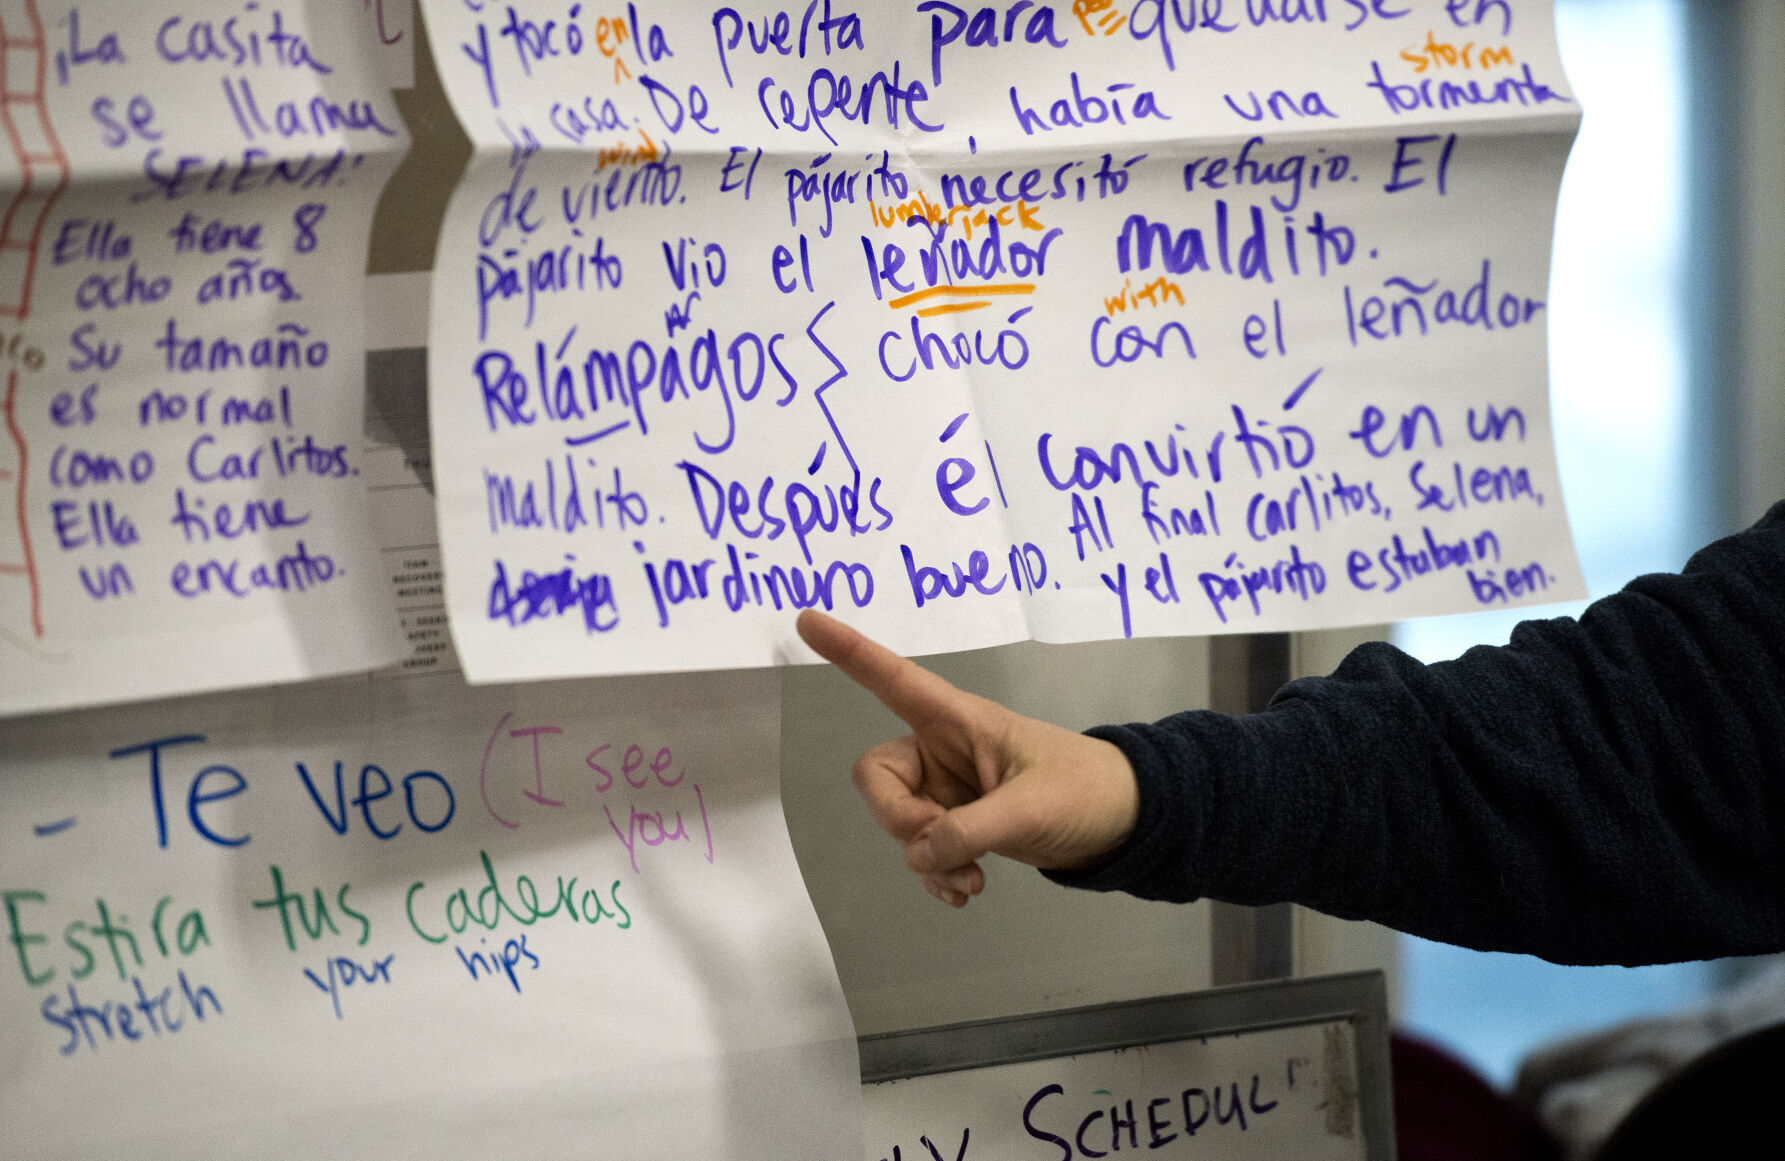 ¡La casita
se llama
SELENA!
Ella tiene 8
ocho años.
Su tamaño
es normal
como Carlitos.
Ella tiene
un encanto.
y tocó en la puerta para quedarse en
storm
la casa. De repente, había una tormenta
wind
de viento. El pájarito necesitó refugio. El
lumberjack
pájarito vio el leñador maldito.
with
Relámpagos chocó con el leñador
maldito. Después él convirtió en un
jardinero bueno. Al final Carlitos, Selena,
y el pájarito estaban
bien.
- Te veo (I see
you)
Estira tus caderas
stretch your hips
SCHEDUL